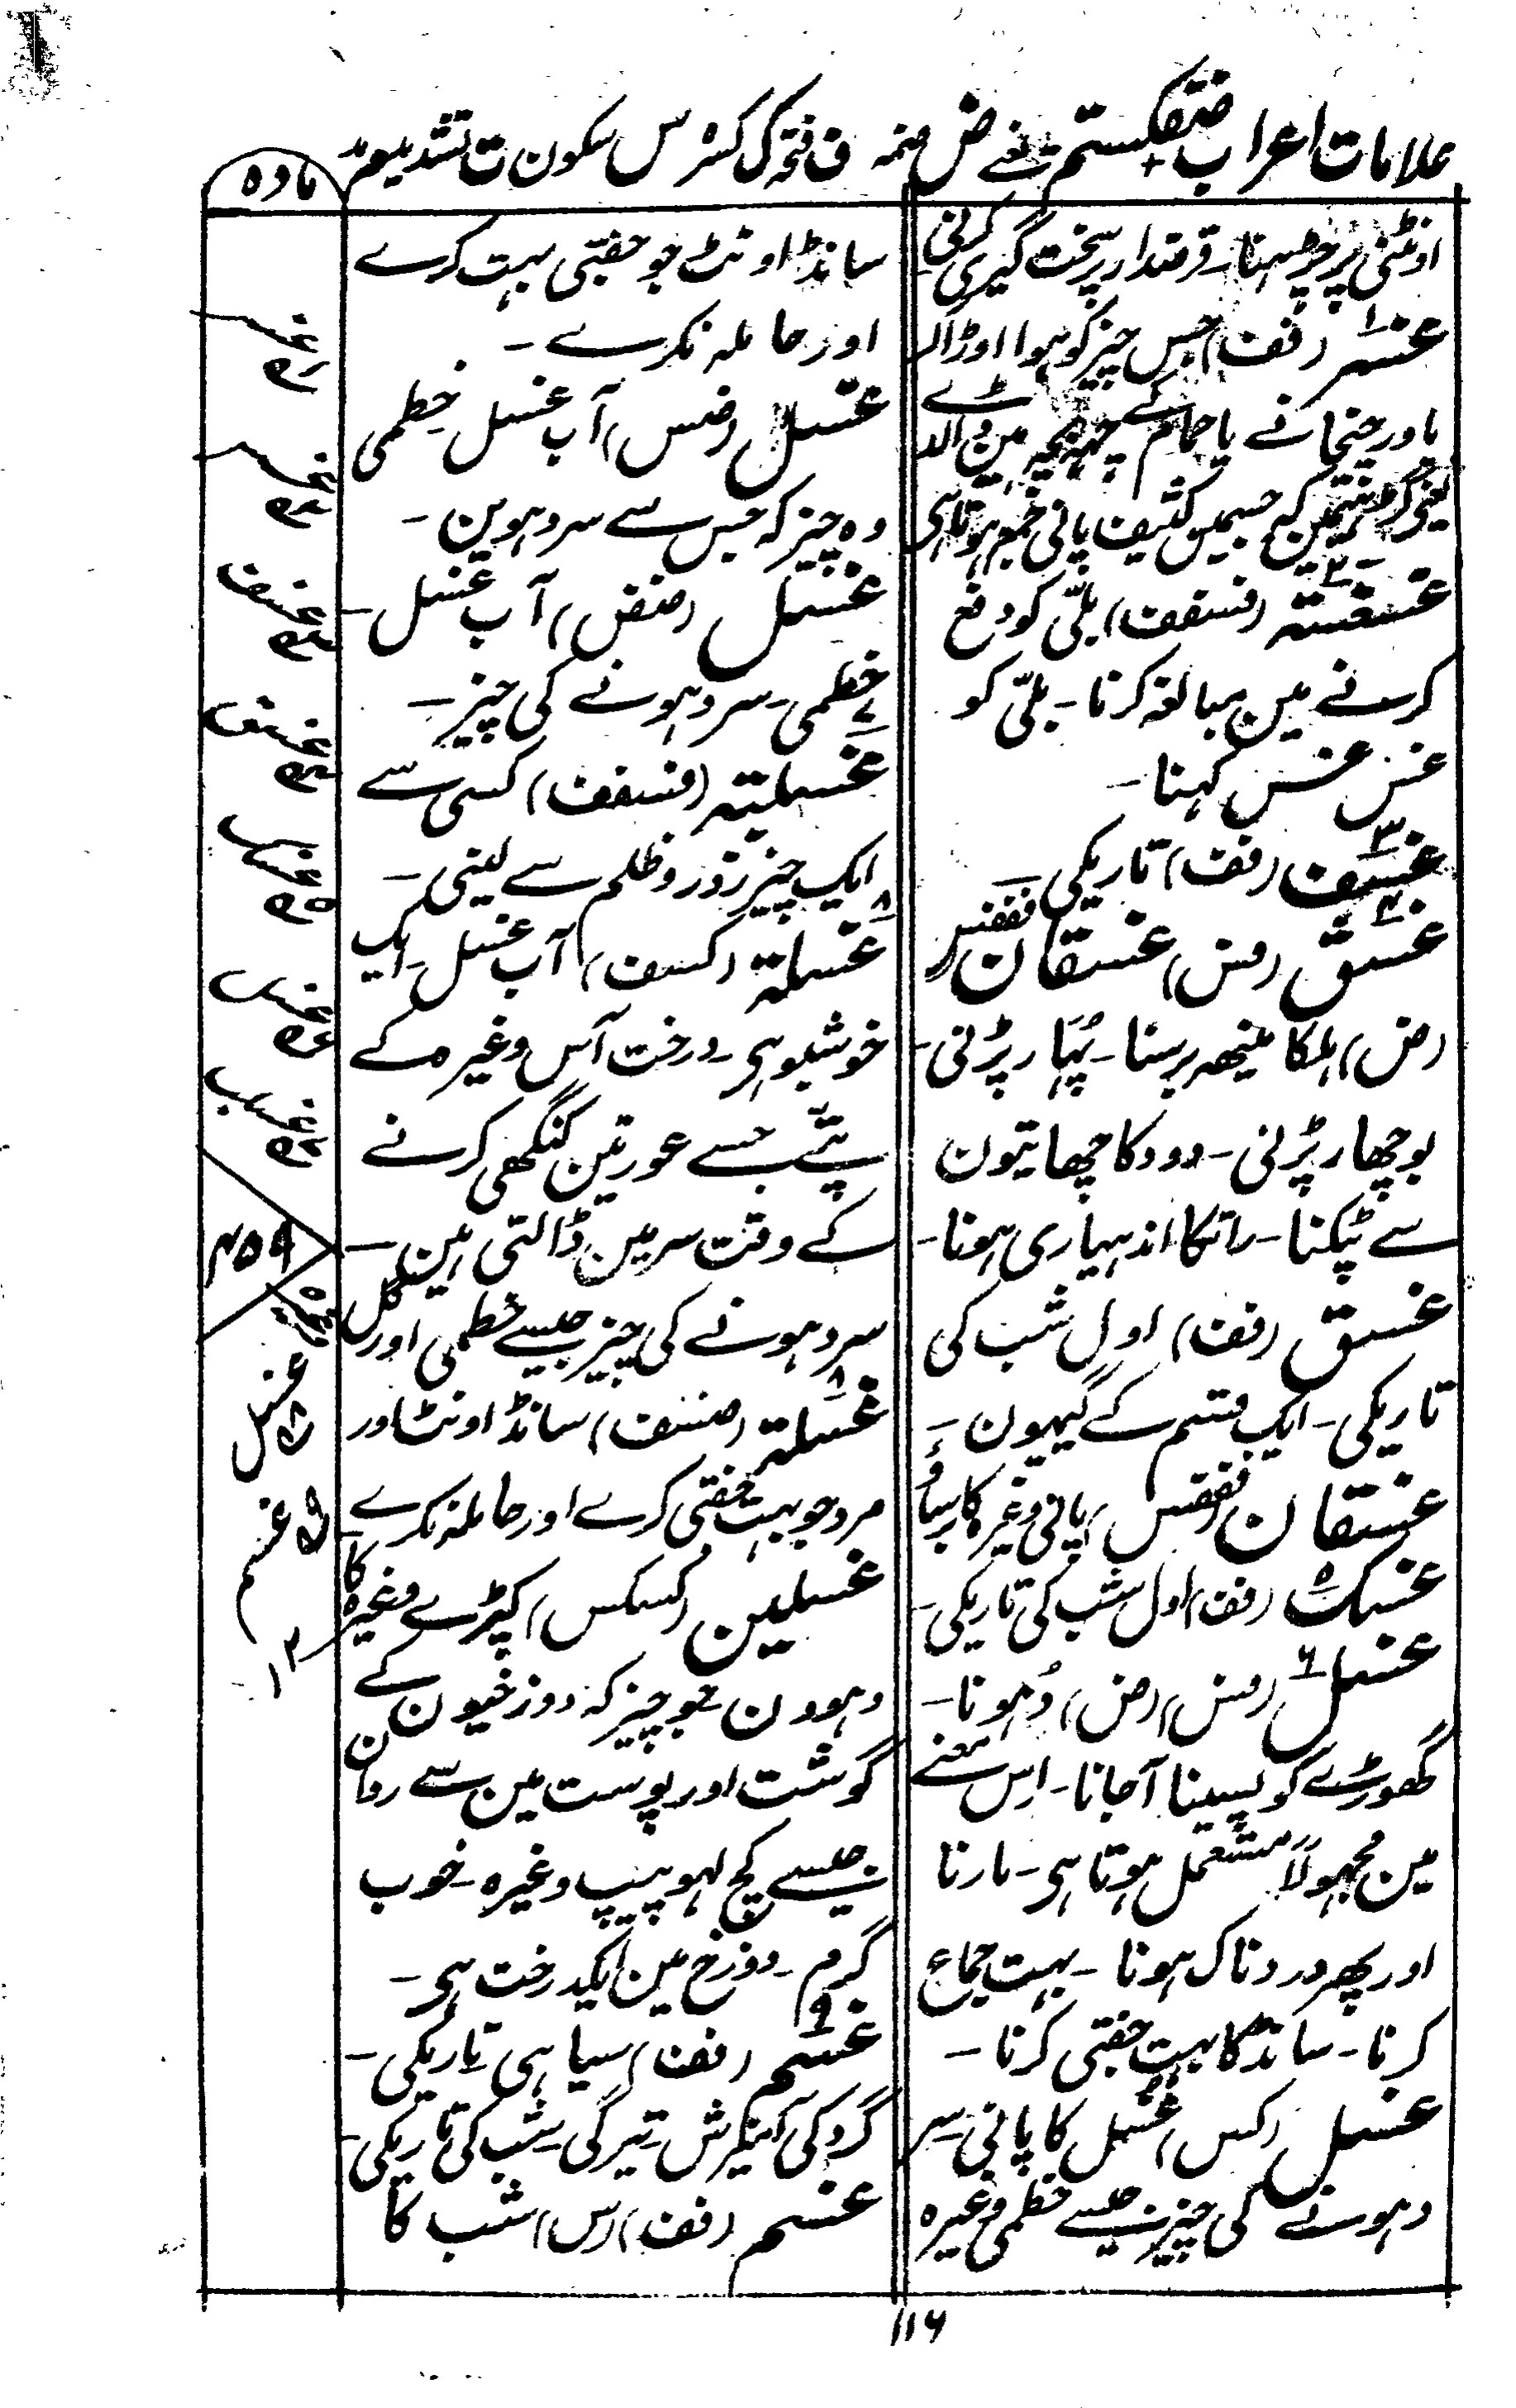 علامات اعراب ضفکستم یعنے ض ضمہ ف فتحہ ک کسرہ س سکون ت تشدید م مد
مادہ
اونٹنی پر چڑہنا۔ قرضدار پر سخت گیری کرنی۔
غسر (فف) جس چیز کو ہوا اوڑا کر
باورچیخانے یا حمام کے چہبچہ مین ڈالدے
یعنی گڑہے مین کہ جسمین کثیف پانی جمع ہوتا ہی
غسغسۃ (فسفف) بلّی کو دفع
کرنے مین مبالغہ کرنا۔ بلّی کو
غس غس کہنا۔
۳
غسف (فف) تاریکی۔
۴
غسق (فس) غسقان (فففس)
(ض) ہلکا مینھہ برسنا۔ پُہار پڑنی۔
بوچھار پڑنی۔ دودکا چھاتیون
سے ٹپکنا۔ راتکا اندہیاری ہونا۔
غسق (فف) اول شب کی
تاریکی۔ ایک قسم کے گیہون۔
غسقان (فففس) پانی وغیرہ کا برساؤ
غسک (فف) اول شب کی تاریکی۔
۶
غسل (فس) (ض) دُہونا۔
گھوڑے کو پسینا آجانا۔ اِس معنے
مین مجہولاً مستعمل ہوتا ہی۔ مارنا
اور پھر دردناک ہونا۔ بہت جماع
کرنا۔ سانڈکا بہت جفتی کرنا۔
غسل (کس) غُسل کا پانی۔ سِر
دہونے کی چیز جیسے خطمی وغیرہ
سانڈ اونٹ جو جفتی بہت کرے
اور حاملہ نکرے۔
غسل (ضس) آب غسل۔ خطمی
وہ چیز کہ جس سے سر دہوین۔
غسل (ضض) آب غسل۔
خطمی۔ سر دہونے کی چیز۔
غسلبۃ (فسفف) کسی سے
ایک چیز زور و ظلم سے لینی۔
۸
غسلۃ (کسف) آب غسل۔ ایک
خوشبو ہی۔ درخت آس وغیرہ کے
پتّے جسے عورتین کنگھی کرنے
کے وقت سر مین ڈالتی ہین۔
سر دہونے کی چیز جیسے خطمی اور گل
۸
غسلۃ (ضتف) سانڈ اونٹ اور
مرد جو بہت جفتی کرے اور حاملہ نکرے۔
غسلین (کسکس) کپڑے وغیرہ کا
دہوون۔ جو چیز کہ دوزخیون کے
گوشت اور پوست مین سے روان
جیسے کچ لہو پیپ وغیرہ۔ خوب
گرم۔ دوزخ مین ایکدرخت ہی۔
۹
غسم (فف) سیاہی تاریکی۔
گرد کی آمیزش۔ تیرگی۔ شب کی تاریکی۔
غسم (فف) (س) شب کا
غسر
غس
غسف
غسق
غسک
غسل
غسلب
۴۵۹
غسل
غسم
۱۳
۱۱۶